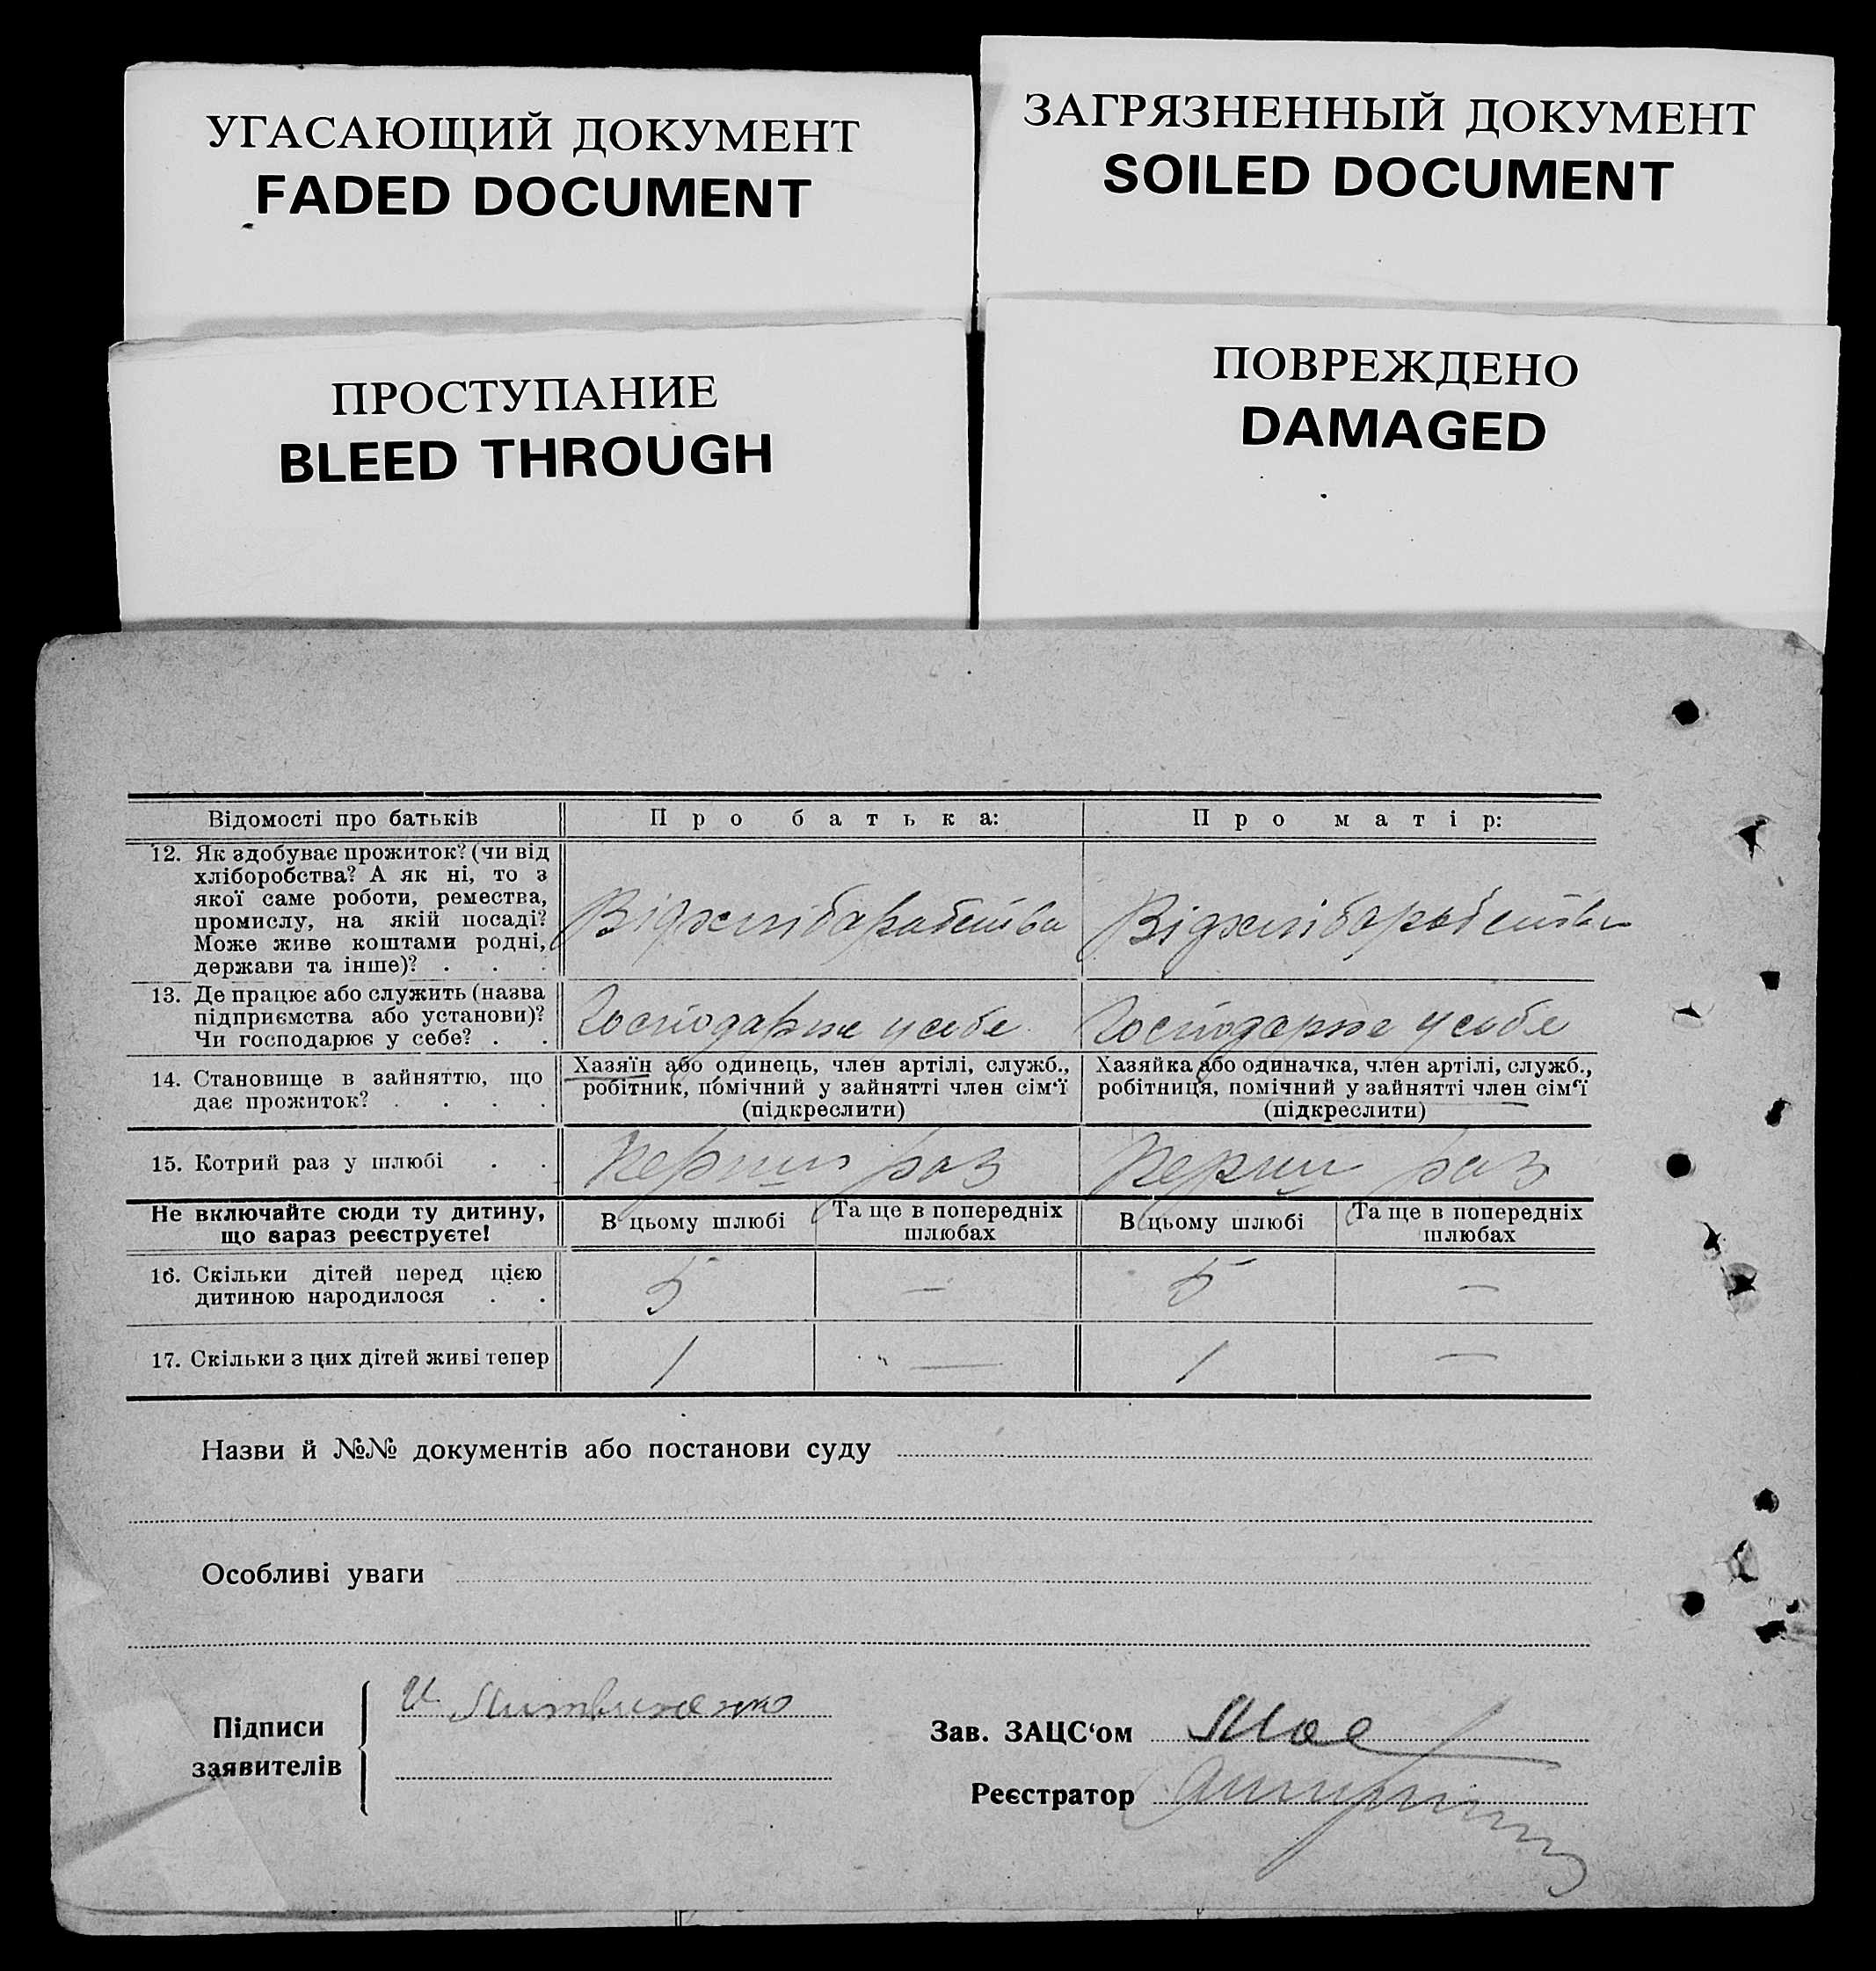 УГАСАЮЩИЙ ДОКУМЕНТ
FADED DOCUMENT
ЗАГРЯЗНЕННЫЙ ДОКУМЕНТ
SOILED DOCUMENT
ПРОСТУПАНИЕ
BLEED THROUGH
ПОВРЕЖДЕНО
DAMAGED
Відомості про батьків
Про батька:
Про матір:
12. Як здобуває прожиток? (чи від
хліборобства? А як ні, то з
якої саме роботи, ремества,
промислу, на якій посаді?
Може живе коштами родні,
держави та інше)? . . .
Відхлібаробства
Відхлібаробства
13. Де працює або служить (назва
підприємства або установи)?
Чи господарює у себе? . .
Господарює усебе
Господарює усебе
14. Становище в зайняттю, що
дає прожиток? . . . .
Хазяїн або одинець, член артілі, служб.,
робітник, помічний у зайнятті член сім‘ї
(підкреслити)
Хазяйка або одиначка, член артілі, служб.,
робітниця, помічний у зайнятті член сім‘ї
(підкреслити)
15. Котрий раз у шлюбі . .
Перший раз
Перший раз
Не включайте сюди ту дитину,
що зараз реєструєте!
В цьому шлюбі
Та ще в попередніх
шлюбах
В цьому шлюбі
Та ще в попередніх
шлюбах
16. Скільки дітей перед цією
дитиною народилося . .
5
—
5
—
17. Скільки з цих дітей живі тепер
1
—
1
—
Назви й №№ документів або постанови суду
Особливі уваги
Підписи
заявителів
И Литвиненко
Зав. ЗАЦС‘ом
Реєстратор